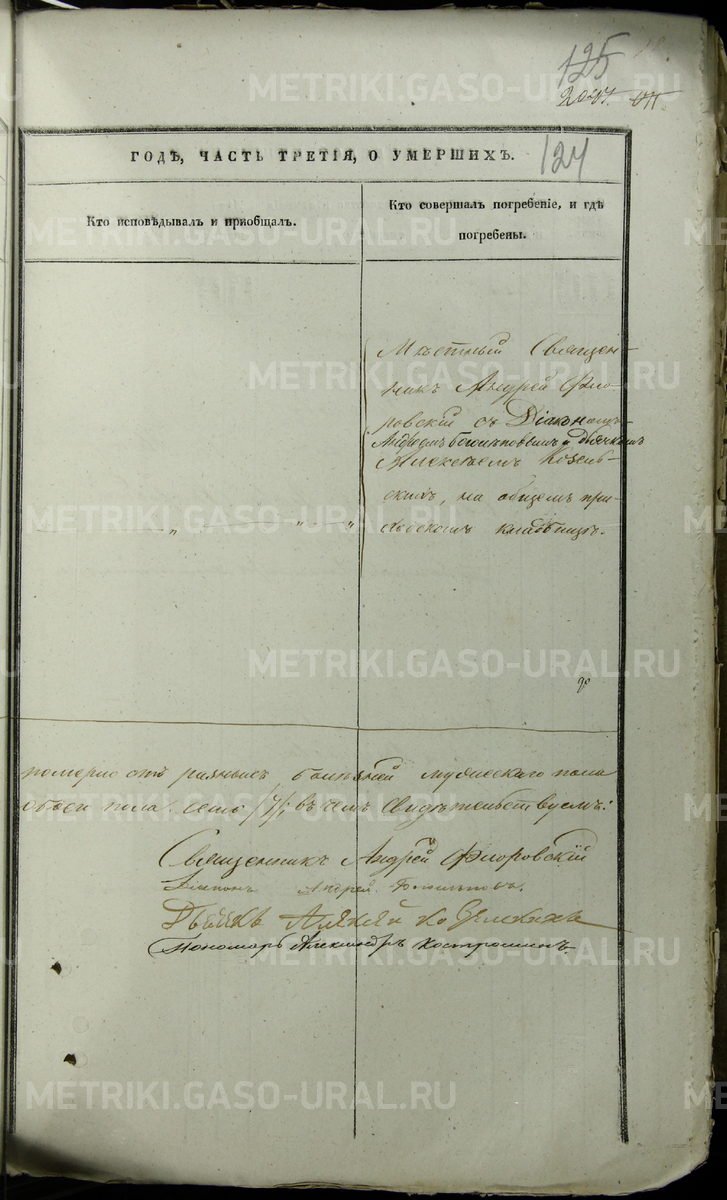 125
124
ГОДѢ, ЧАСТЬ ТРЕТІЯ, О УМЕРШИХЪ.
Кто исповѣдывалъ и пріобщалъ.
Кто совершалъ погребеніе, и гдѣ
погребены.
Мѣстный Священ-
никъ Андрей Фло-
ровскій съ Діакономъ
Андреемъ и дьячкомъ
Алексѣемъ Козель-
скимъ, на общемъ при-
ходскомъ кладбищѣ.
померло отъ разныхъ болѣзней мужескаго пола
обоего пола семь /7/; въ чемъ свидѣтельствуемъ:
Священникъ Андрей Флоровскій
Діаконъ Андрей
Дьячекъ Алексѣй
Пономарь Александръ Костромин
METRIKI.GASO-URAL.RU